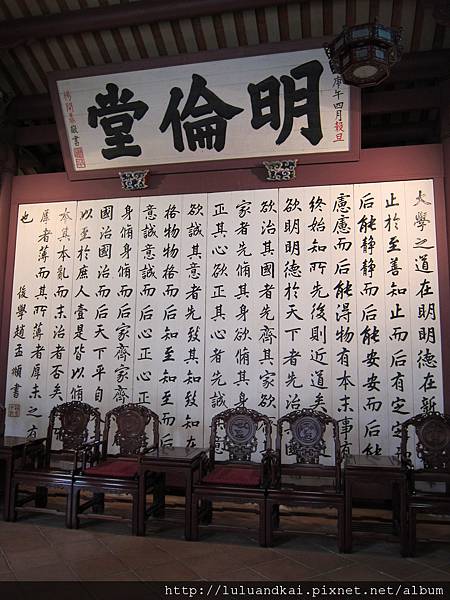 明倫堂
庚午四月穀旦
敬書
大學之道在明明德在新
止於至善知止而后有定定
后能靜靜而后能安安而后
慮慮而后能得物有本末事有
終始知所先後則近道矣
欲明明德於天下者先治
欲治其國者先齊其家欲
家者先脩其身欲脩其
正其心欲正其心者先誠
欲誠其意者先致其知致知在
格物物格而后知至知至
意誠意誠而后心正心正
身脩身脩而后家齊家齊
國治國治而后天下平自
以至於庶人壹是皆以脩
本其本亂而末治者否矣
厚者薄而其所薄者厚未之有
也
後學趙孟頫書
http://luluandkai.pixnet.net/album